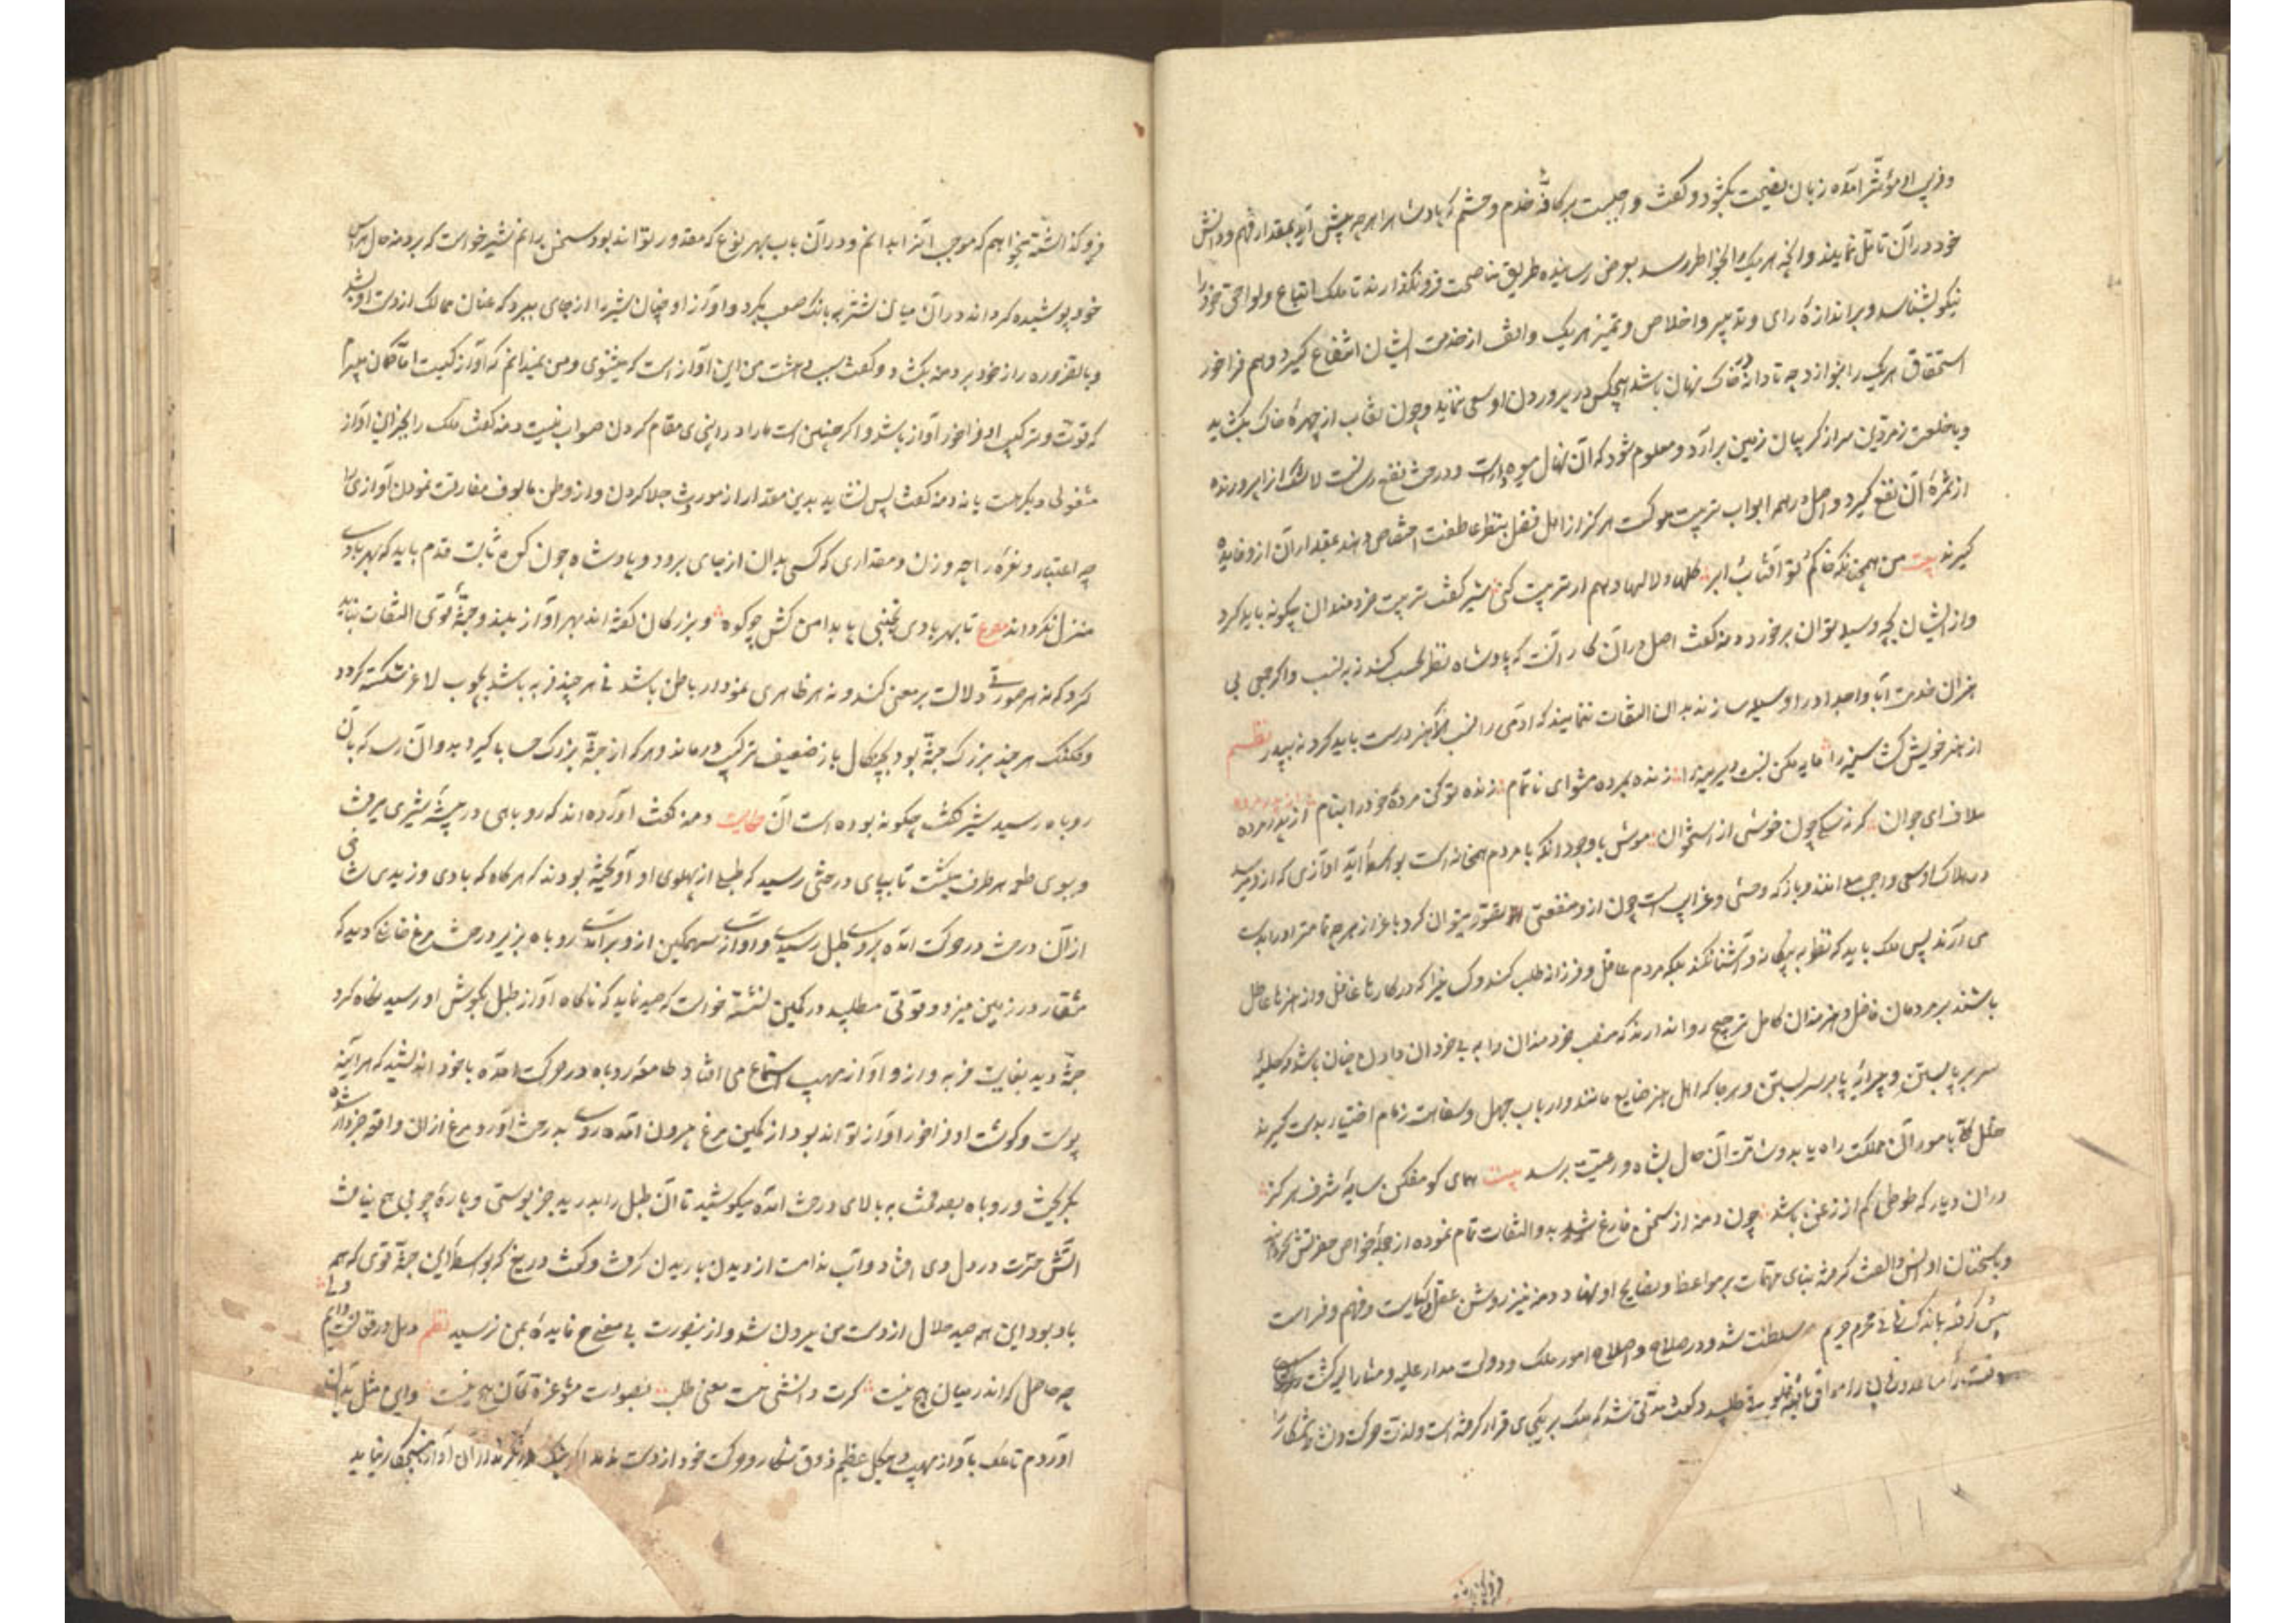 و فریب او مؤثر آمده زبان نصیحت بگشود و گفت واجبست بر کافهٔ خدم و حشم که پادشاه را هر چه پیش آید بمقدار فهم و دانش
خود در آن تامل نمایند و آنچه هر یک را بخاطر رسد بعرض رسانیده طریق مناصحت فرو نگذارند تا ملک اتباع و لواحق خود را
نیکو بشناسد و بر اندازهٔ رای و تدبیر و اخلاص و تمیز هر یک واقف از خدمت ایشان انتفاع گیرد و هم فراخور
استحقاق هر یک را بنوازد چه تا دانه در خاک نهان باشد هیچکس در پروردن او سعی ننماید و چون نقاب از چهرهٔ خاک بکشاید
و با خلعت زمردین سر از گریبان زمین برآرد و معلوم شود که آن نهال میوه دارست و درخت نفع رسانست لاشک آنرا پرورند
از ثمرهٔ آن نفع گیرد و اصل در همه ابواب تربیت ملوکست هر کرا از اهل فضل بنظر عاطفت اختصاص دهند بمقدار آن ازو فایده
گیرند بیت من همچو خاکم تو آفتاب و ابر گلها و لالها دهم ار تربیت کنی شیر گفت تربیت خردمندان چگونه باید کرد
و از ایشان بچه وسیله توان برخورد دمنه گفت اصل در آن کار آنست که پادشاه نظر بحسب کند نه به نسب و اگر جمعی بی
هنران خدمت آبا و اجداد را وسیله سازند بدان التفات ننمایند که آدمی را نسب بهنر درست باید کرد نه بپدر نظم
از هنر خویش گشا سینه را مایه مکن نسبت دیرینه را زنده بمرده مشو ای ناتمام زنده تو کن مردهٔ خود را بنام از پدر مرده
ملاف ای جوان گر نه سگی چون خوشی از استخوان موش با وجود آنکه با مردم همخانه است بواسطهٔ ایذا و آزاری که ازو میرسد
در هلاک او سعی واجب میدانند و باز که وحشی و غریبست چون ازو منفعتی تصور میتوان کرد باعزاز هر چه تمامتر او را بدست
می آرند پس ملک باید که نظر به بیگانه و آشنا نکند بلکه مردم عاقل و فرزانه طلب کند و کسانی را که در کارها غافل و از هنرها عاطل
باشند بر مردمان فاضل و هنرمندان کامل ترجیح روا ندارند که منصب خردمندان را به بی خردان دادن چنان باشد که حلیهٔ
سر بر پا بستن و پیرایهٔ پا بر سر بستن و هر جا که اهل هنر ضایع مانند و ارباب جهل و سفاهت زمام اختیار بدست گیرند
خلل کلی بامور آن مملکت راه یابد و شامت آن حال بشاه و رعیت برسد بیت همای گو مفکن سایهٔ شرف هرگز
در آن دیار که طوطی کم از زغن باشد چون دمنه از سخن فارغ شد شیر بدو التفات تمام نموده از جملهٔ خواص حضرتش گردانید
و با سخنان او انس و الفت گرفته بنای مهمات بر مواعظ و نصایح او نهاد دمنه نیز روش عقل و کیاست و فهم و فراست
پیش گرفته باندک زمانی محرم حریم سلطنت شد و در صلاح و اصلاح امور ملک و دولت مدار علیه و مشار الیه گشت روزی
فرصت را مساعد و زمانی را موافق یافته خلوتی طلبید و گفت مدتی شد که ملک بر یکجای قرار گرفته است و لذت حرکت و نشاط شکار را
فرو گذاشته
فرو گذاشته میخواهم که موجب آنرا بدانم و در آن باب بهر نوع که مقدور تواند بود سخن برانم شیر خواست که بر دمنه حال هراس
خود پوشیده گرداند در آن میان شتربه بانگ صعب بکرد و آواز او چنان شیر را از جای ببرد که عنان تمالک از دست او بشد
و بالضروره راز خود بر دمنه بکشاد و گفت سبب دهشت من این آواز است که میشنوی و من نمیدانم که آواز کیست اما گمان میبرم
که قوت و ترکیب او فراخور آواز باشد و اگر چنین است ما را در اینجای مقام کردن صواب نیست دمنه گفت ملک را بجز این آواز
مشغولی دیگر هست یا نه دمنه گفت پس نشاید بدین مقدار از موروث جلا کردن و از وطن مالوف مفارقت نمودن آواز را
چه اعتبار و نعره را چه وزن و مقداری که کسی بدان از جای برود و پادشاه چون کوه ثابت قدم باید که بهر بادی
متزلزل نگردد مصرع تا بهر بادی نجنبی پا بدامن کش چو کوه و بزرگان گفته اند بهر آواز بلند و جثهٔ قوی التفات نباید
کرد که نه هر صورتی دلالت بر معنی کند و نه هر ظاهری نمودار باطن باشد نی هر چند فربه باشد بچوب لاغر شکسته گردد
و کلنگ هر چند بزرگ جثه بود بچنگال باز ضعیف ترکیب درماند و هر که از جثهٔ بزرگ حساب گیرد بدو آن رسد که بآن
روباه رسید شیر گفت چگونه بوده است آن حکایت دمنه گفت آورده اند که روباهی در بیشهٔ میرفت
و ببوی طعمه هر طرف میگشت تا بپای درختی رسید که طبلی از پهلوی او آویخته بودند که هرگاه که بادی وزیدی شاخی
از آن درخت در حرکت آمده بروی طبل رسیدی و آواز سهمگین ازو برآمدی روباه بزیر درخت مرغ خانگی دید که
منقار در زمین میزد و قوتی میطلبید در کمین نشسته خواست که صید نماید که ناگاه آواز طبل بگوش او رسید نگاه کرد
جثهٔ دید بغایت فربه و ازو آواز مهیب استماع می افتاد طامعهٔ روباه در حرکت آمده با خود اندیشید که هر آینه
پوست و گوشت او فراخور آواز تواند بود از کمین مرغ بیرون آمده روی به درخت آورد مرغ از آن واقعه خبردار شده
بگریخت و روباه بصد محنت به بالای درخت آمده میکوشید تا آن طبل را بدرید جز پوستی و پارهٔ چوبی هیچ نیافت
آتش حسرت در دل وی افتاد و آب ندامت از دیده باریدن گرفت و گفت دریغ که بواسطهٔ این جثهٔ قوی که همه
باد بود این همه صید حلال از دست من بیرون شد و ازین صورت بی معنی هیچ فایدهٔ بمن نرسید نظم دهل در فغانست دایم ولی
چه حاصل که اندر میان هیچ نیست گرت دانشی هست معنی طلب بصورت مشو غره کان هیچ نیست و این مثل بدان
آوردم تا ملک بآواز مهیب و هیکل عظیم ذوق شکار و حرکت خود از دست ندهد اگر نیک درنگرند از آن آواز هیچ کار نیاید